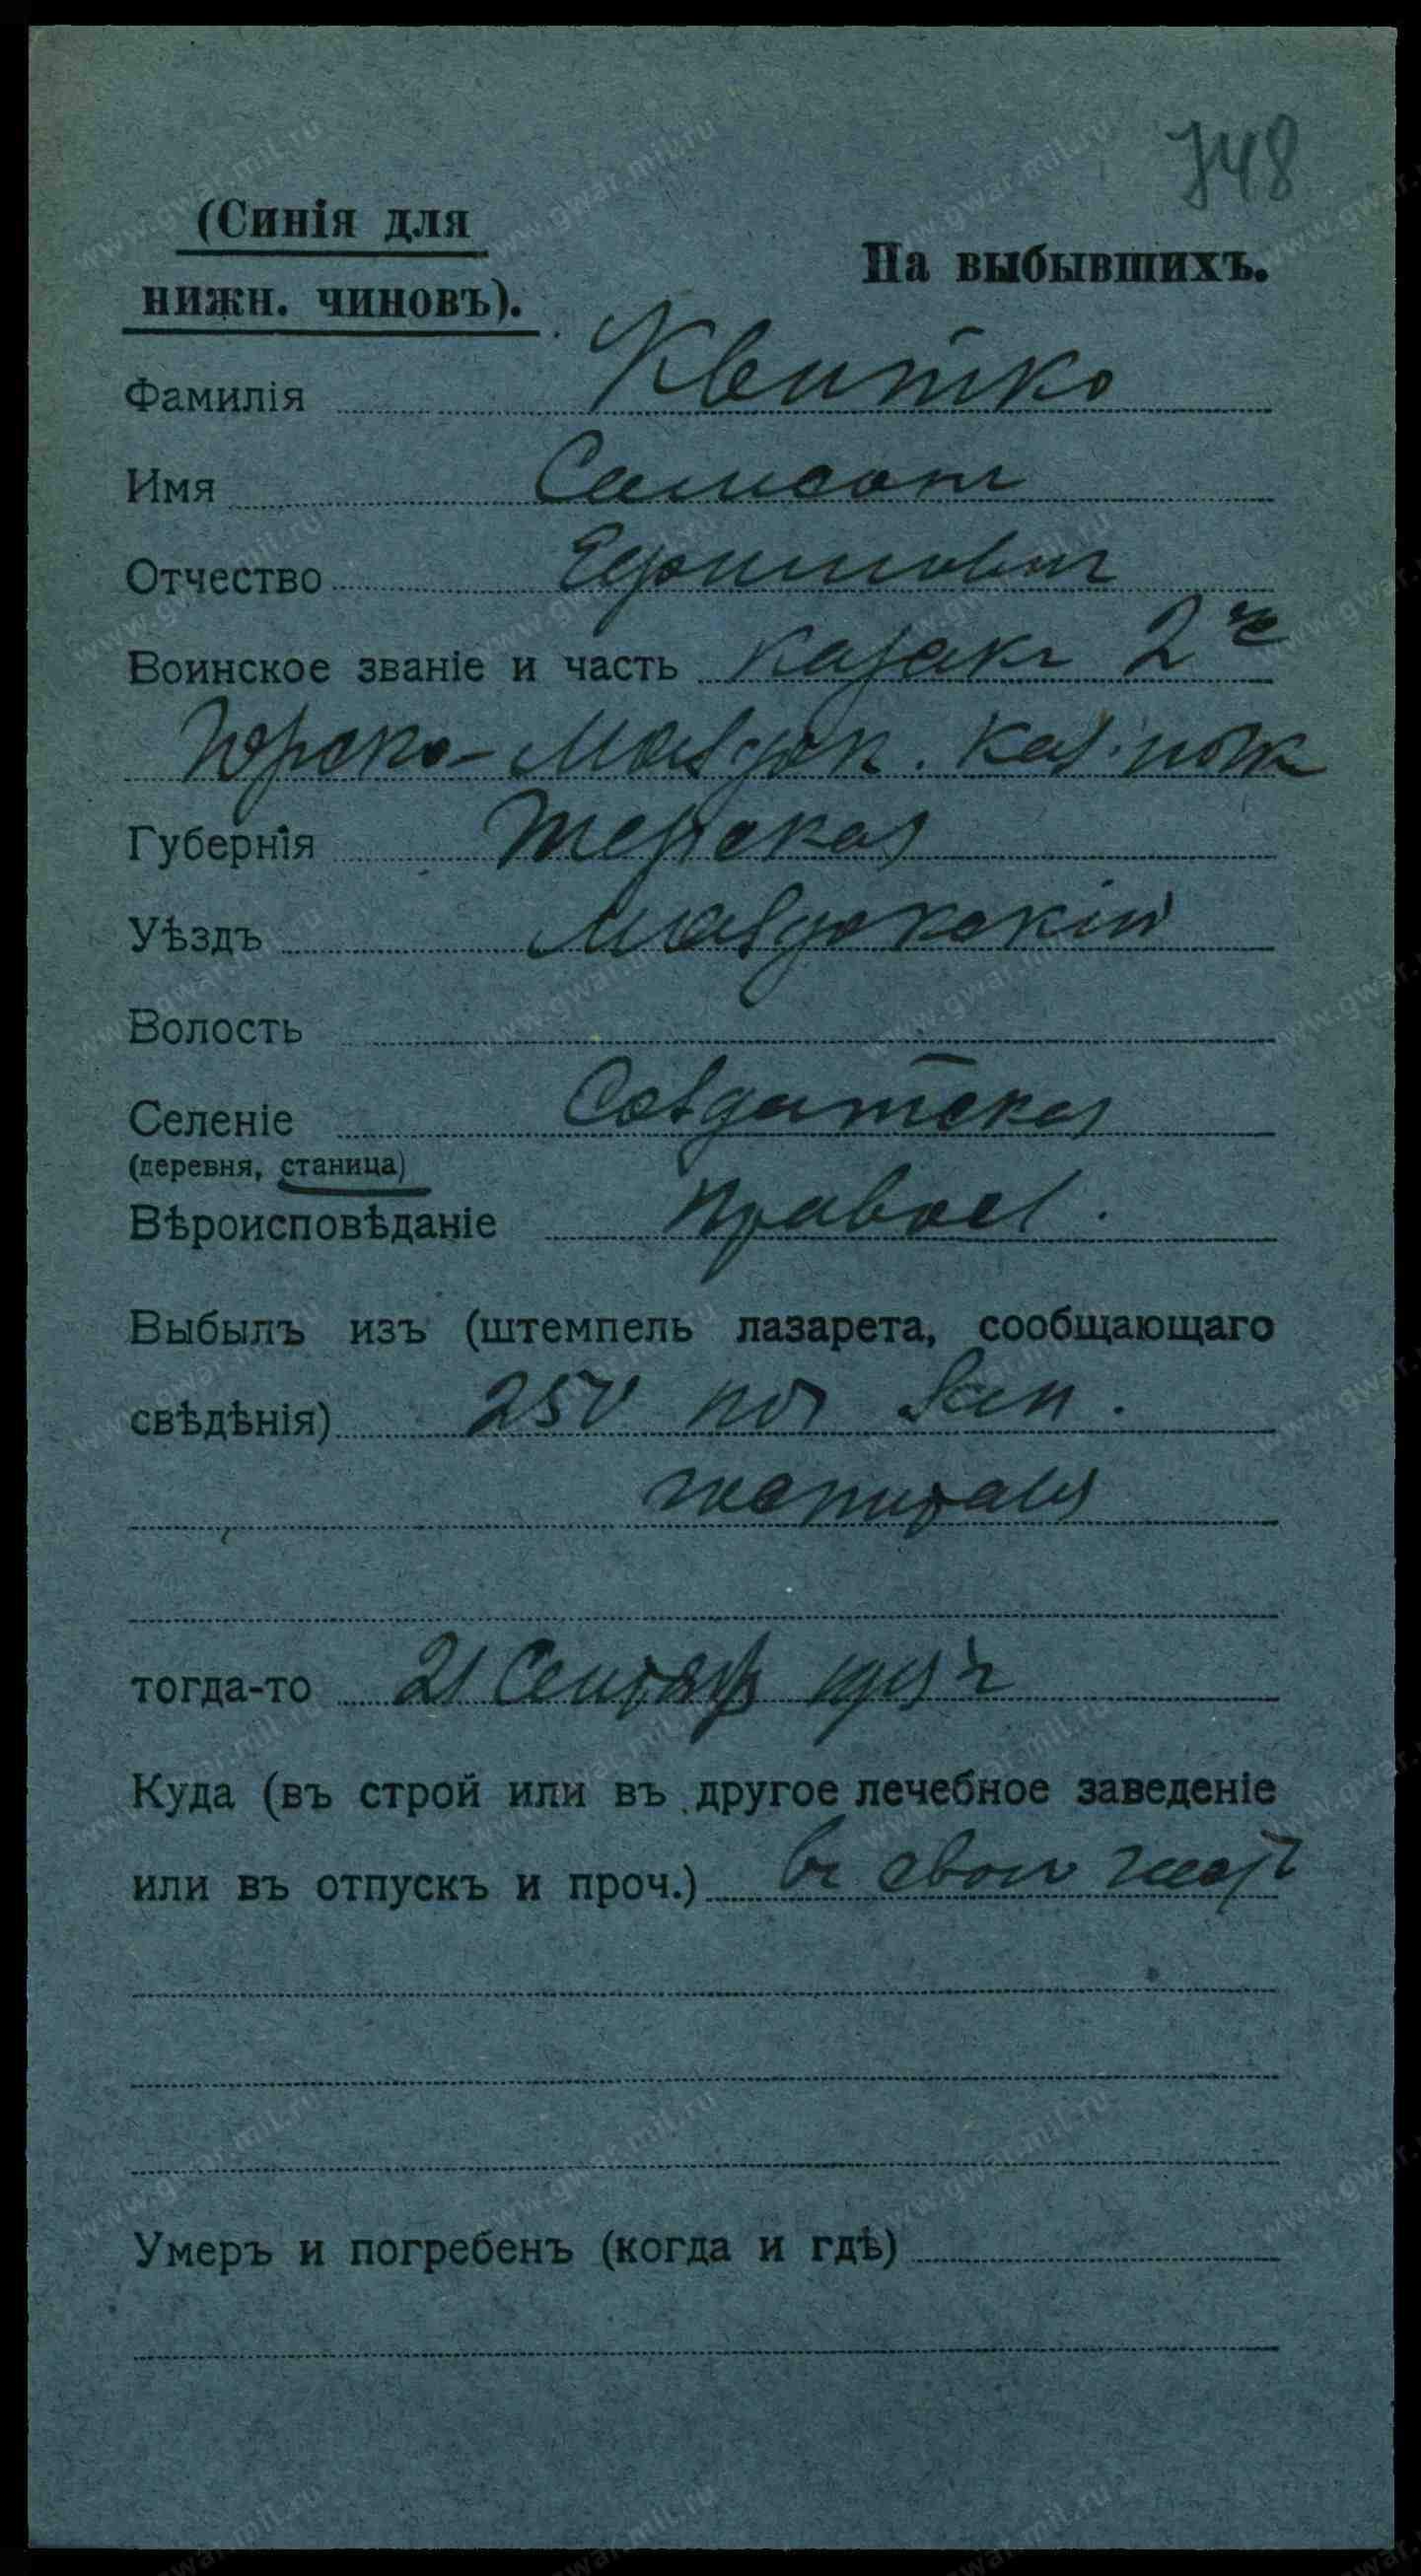 748
(Синія для
нижн. чиновъ).
На выбывшихъ.
Фамилія Квитко
Имя Самсонъ
Отчество Ефимовичъ
Воинское званіе и часть казакъ 2го
Горско-Моздок. каз. полк
Губернія Терская
Уѣздъ Моздокскій
Волость
Селеніе Солдатская
(деревня, станица)
Вѣроисповѣданіе Правосл.
Выбылъ изъ (штемпель лазарета, сообщающаго
свѣдѣнія) пол Зап.
госпиталя
тогда-то 21 Сентяб
Куда (въ строй или въ другое лечебное заведеніе
или въ отпускъ и проч.) въ свою часть
Умеръ и погребенъ (когда и гдѣ)